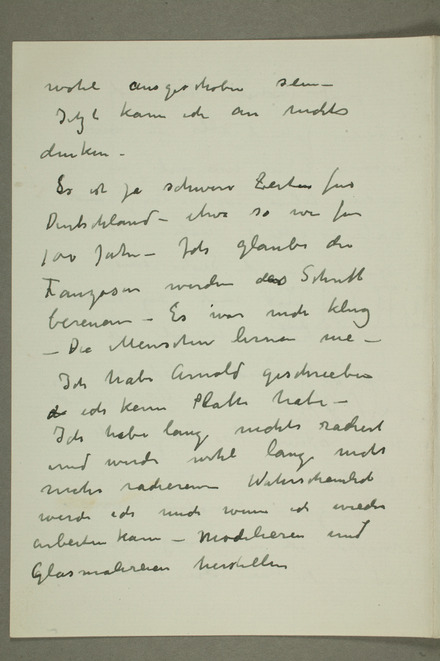 wohl ausgeschoben sein –
Jetzt kann ich an nichts
denken –
Es ist ja schwere Zeiten für
Deutschland – etwa so wie für
100 Jahr – Ich glaube die
Franzosen werden den Schritt
bereuen – Es war nicht klug
– Die Menschen lernen nie –
Ich habe Arnold geschrieben
ich keine Platte habe –
Ich habe lang nichts radiert
und werde wohl lange nicht
mehr radieren Wahrscheinlich
werde ich mich wenn ich wieder
arbeiten kann – Modellieren und
Glasmalereien herstellen